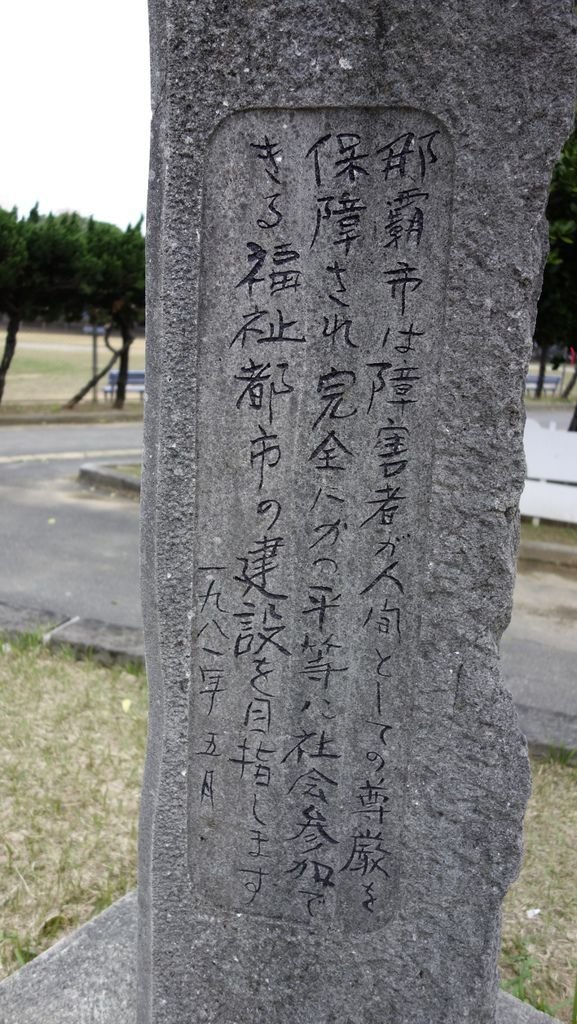 那覇市は障害者が人間としての尊厳を
保障され完全にかつ平等に社会参加で
きる福祉都市の建設を目指します
一九八一年五月